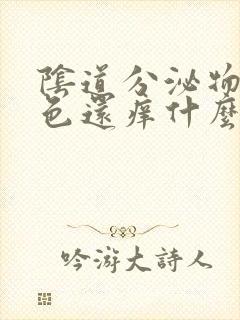 陰道分泌物
色還痒什麼
吟游大詩人